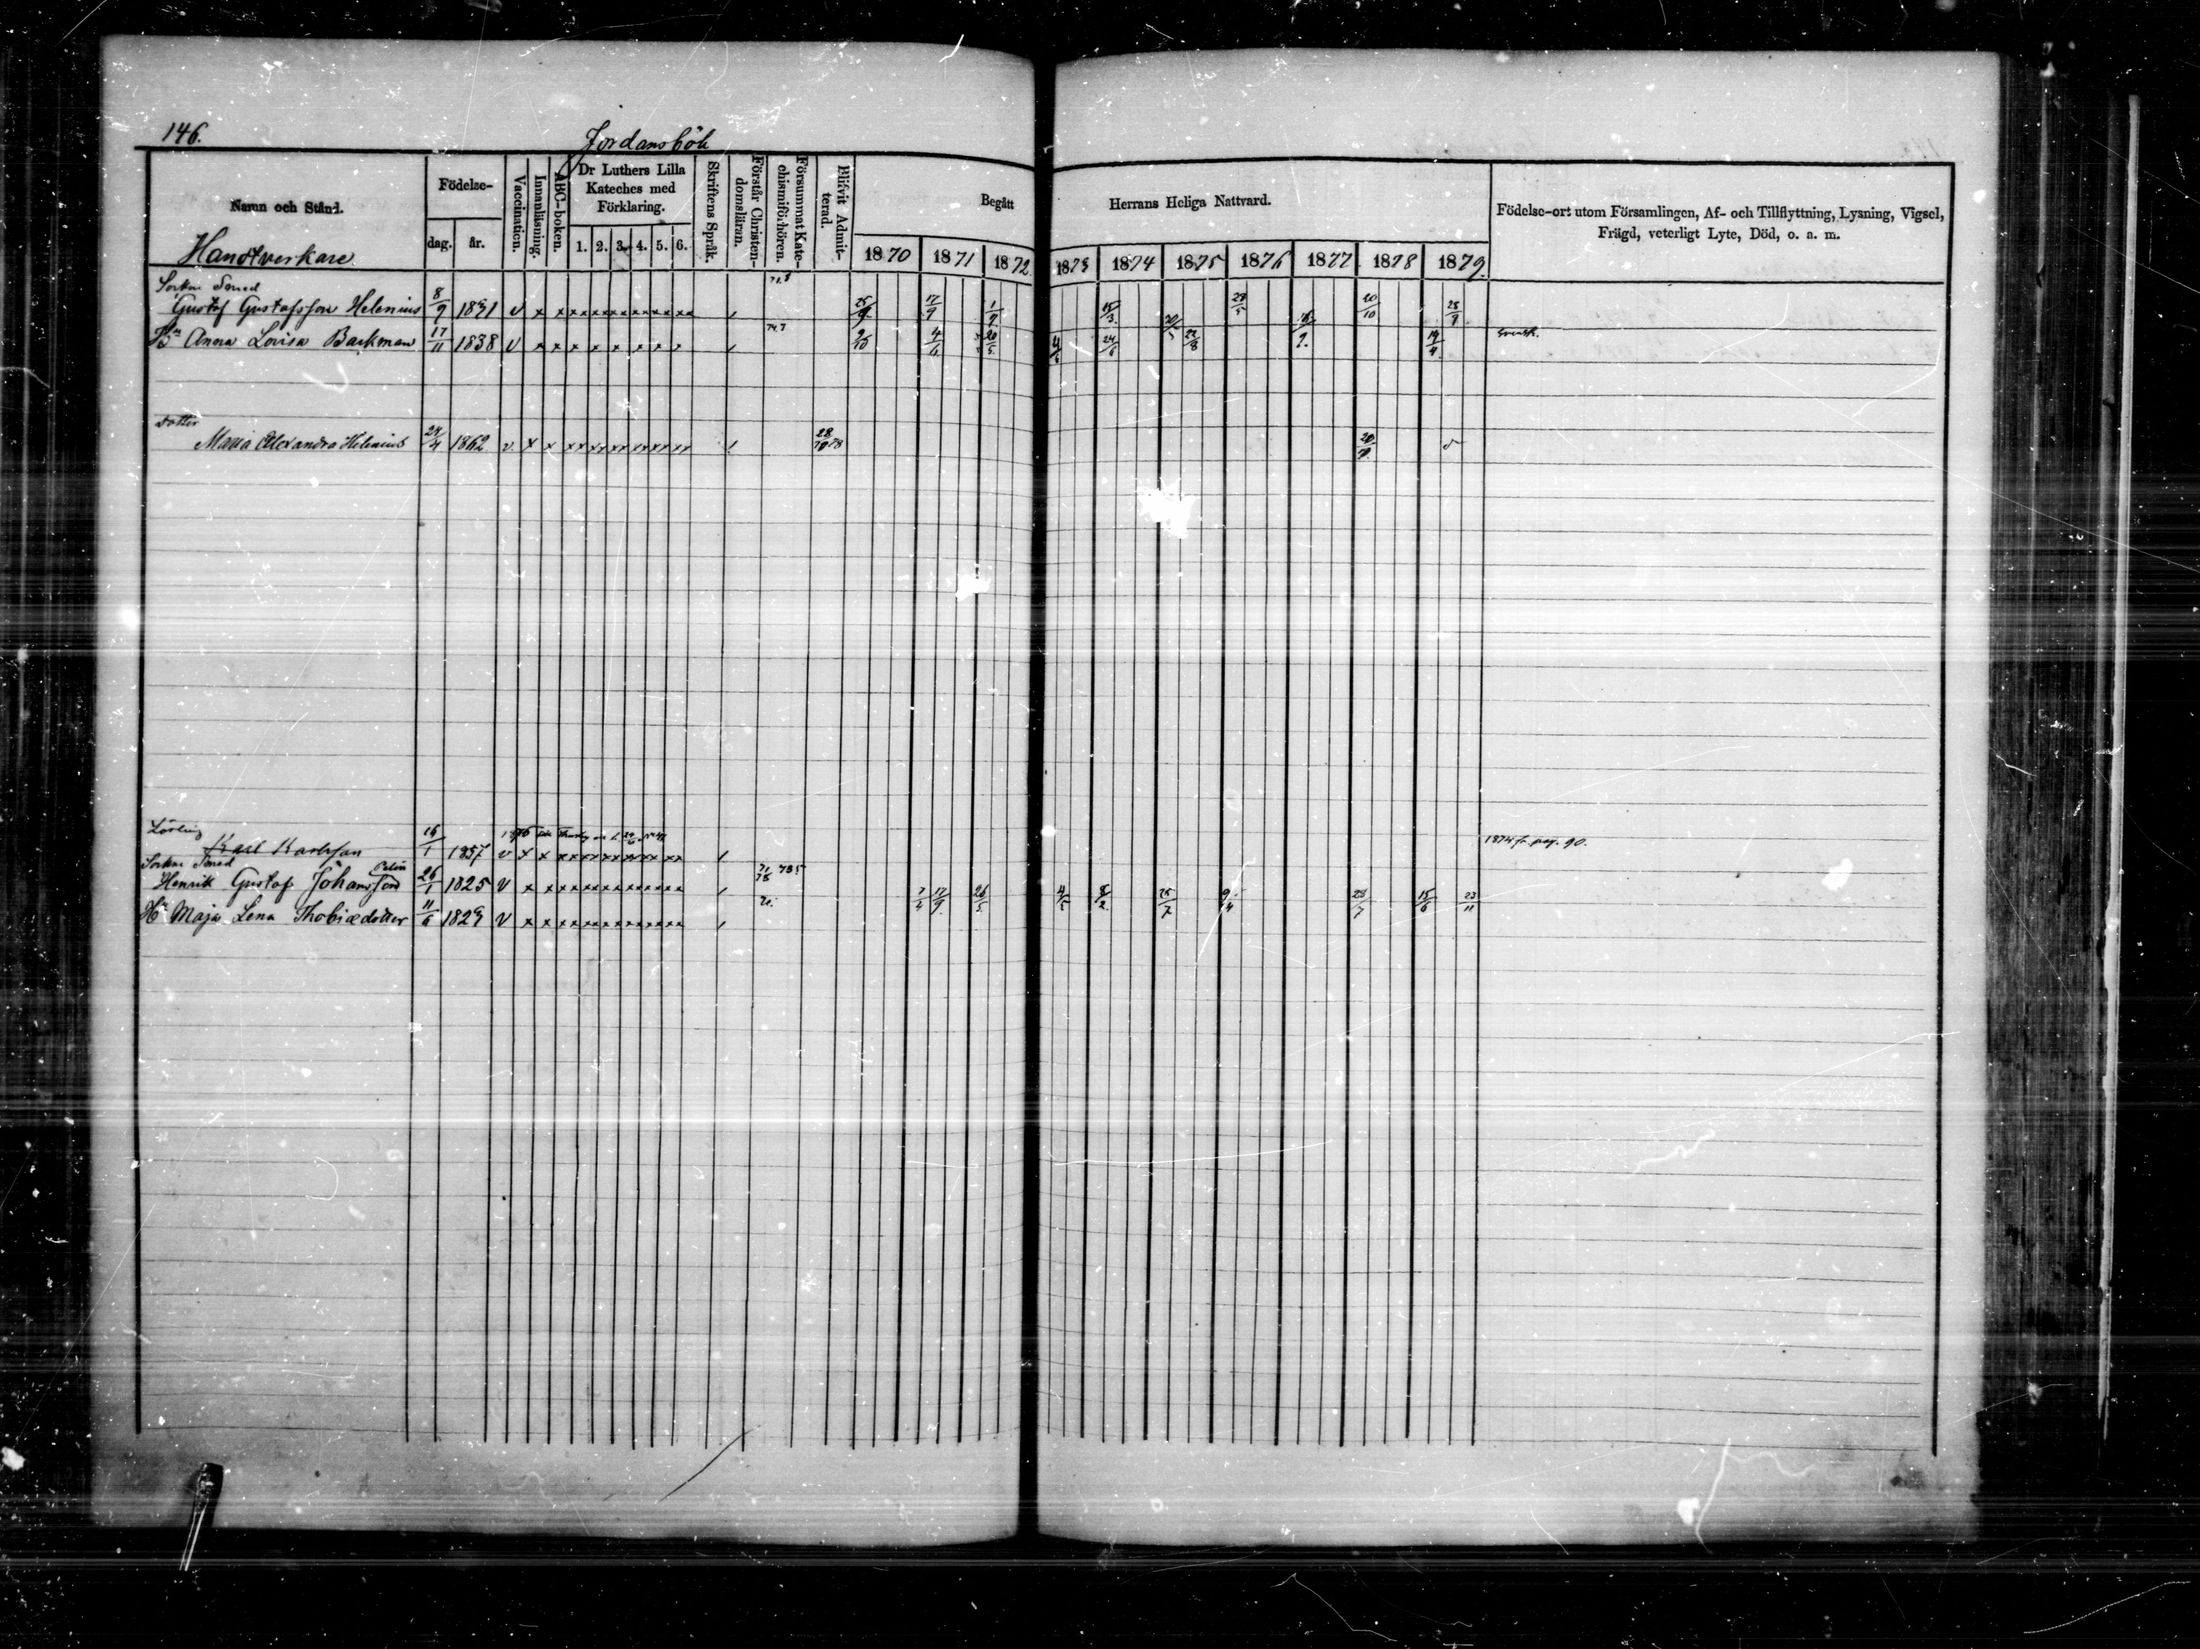 146.
Jordansböle
Namn och Stånd.
Födelse-
dag.
år.
Vaccination.
Innanläsning.
ABC-boken.
Dr Luthers Lilla Kateches med Förklaring.
1. 2. 3. 4. 5. 6.
Skriftens Språk.
Förstår Christendomsläran.
Försummat Katechismiförhören.
Blifvit Admitterad.
Begått Herrans Heliga Nattvard.
1870 1871 1872 1873 1874 1875 1876 1877 1878 1879
Födelse-ort utom Församlingen, Af- och Tillflyttning, Lysning, Vigsel,
Frägd, veterligt Lyte, Död, o. a. m.
Handtverkare
Sockne Smed
Gustaf Gustafsson Helenius 8/9 1831 v 25/9 17/9 1/9 15/3 28/5 20/10 28/9
Hu Anna Lovisa Backman 17/11 1838 v 9/10 4/6 20/5 24/6 22/8 14/4
dotter
Maria Alexandra Helenius 24/4 1862 v 28/10 78 20/10
Lösling
Karl Karlsson 16/1 1857 v 1874 fr. pag. 90.
Sockne Smed
Henrik Gustaf Johansson 26/1 1825 v 7/4 17/9 26/5 4/5 8/2 25/7 9/4 28/7 15/6 23/11
Hu Maja Lena Thobiædotter 11/6 1829 v